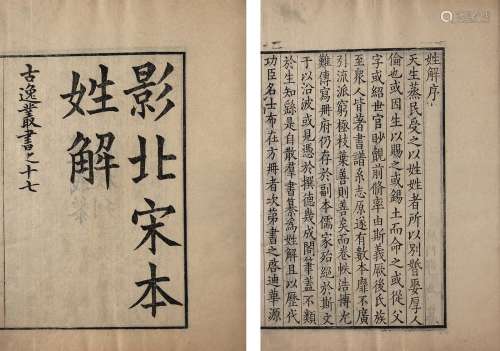 影北宋本
姓解
古逸叢書之十七
姓解序
天生蒸民受之以姓姓者所以別婚娶厚人
倫也或因生以賜之或錫土而命之或從父
字或紹世官眇覿前脩率由斯義厥後氏族
至衆人皆著書譜系志原遂有數本靡不廣
引流派窮極枝葉善則善矣而卷帙浩博尤
難傳寫冊府仍存於副本儒家殆經於斯文
於以沿波或見憑於撰德幾成閣筆蓋不類
於生知餘是自散羣書纂為姓解且以歷代
功臣名士布在方冊者次第書之啓迪華源